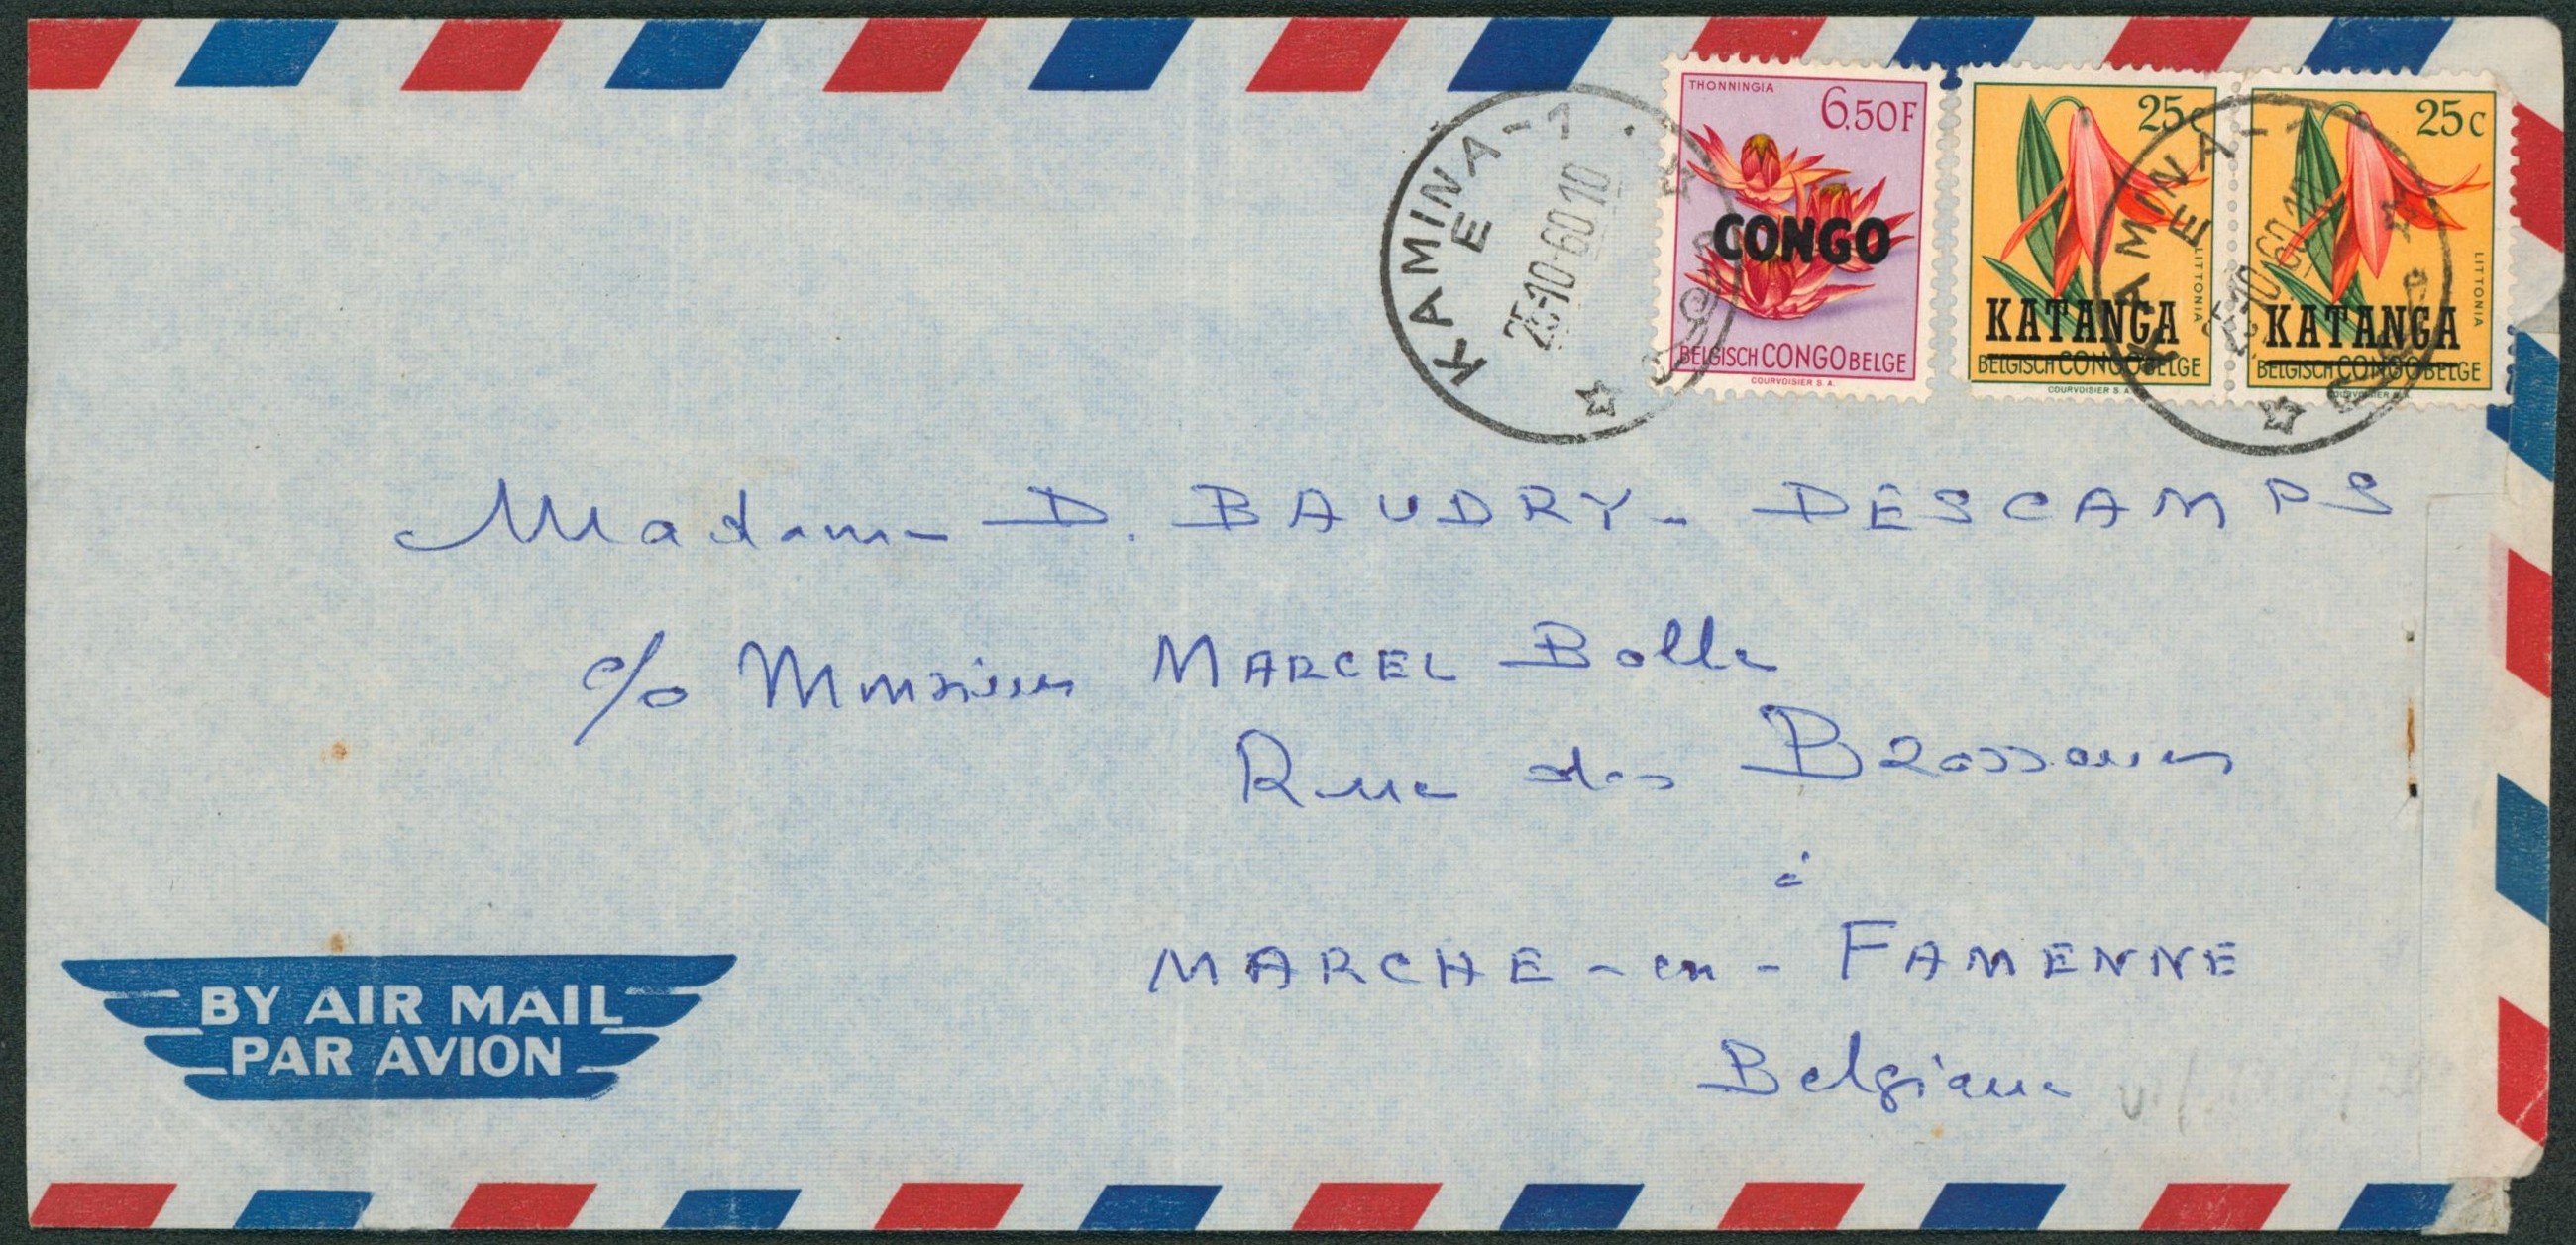 THONNINGIA
6.50F
CONGO
BELGISCH CONGO BELGE
COURVOISIER S. A.
25c
LITTONIA
KATANGA
BELGISCH CONGO BELGE
COURVOISIER S. A.
25c
LITTONIA
KATANGA
BELGISCH CONGO BELGE
COURVOISIER S. A.
KAMINA-1
E
25-10-60 10
KAMINA-1
E
25-10-60 10
Madame D. BAUDRY-DESCAMPS
c/o Monsieur MARCEL Bolle
Rue des Brasseurs
à
MARCHE-en-FAMENNE
Belgique
BY AIR MAIL
PAR AVION